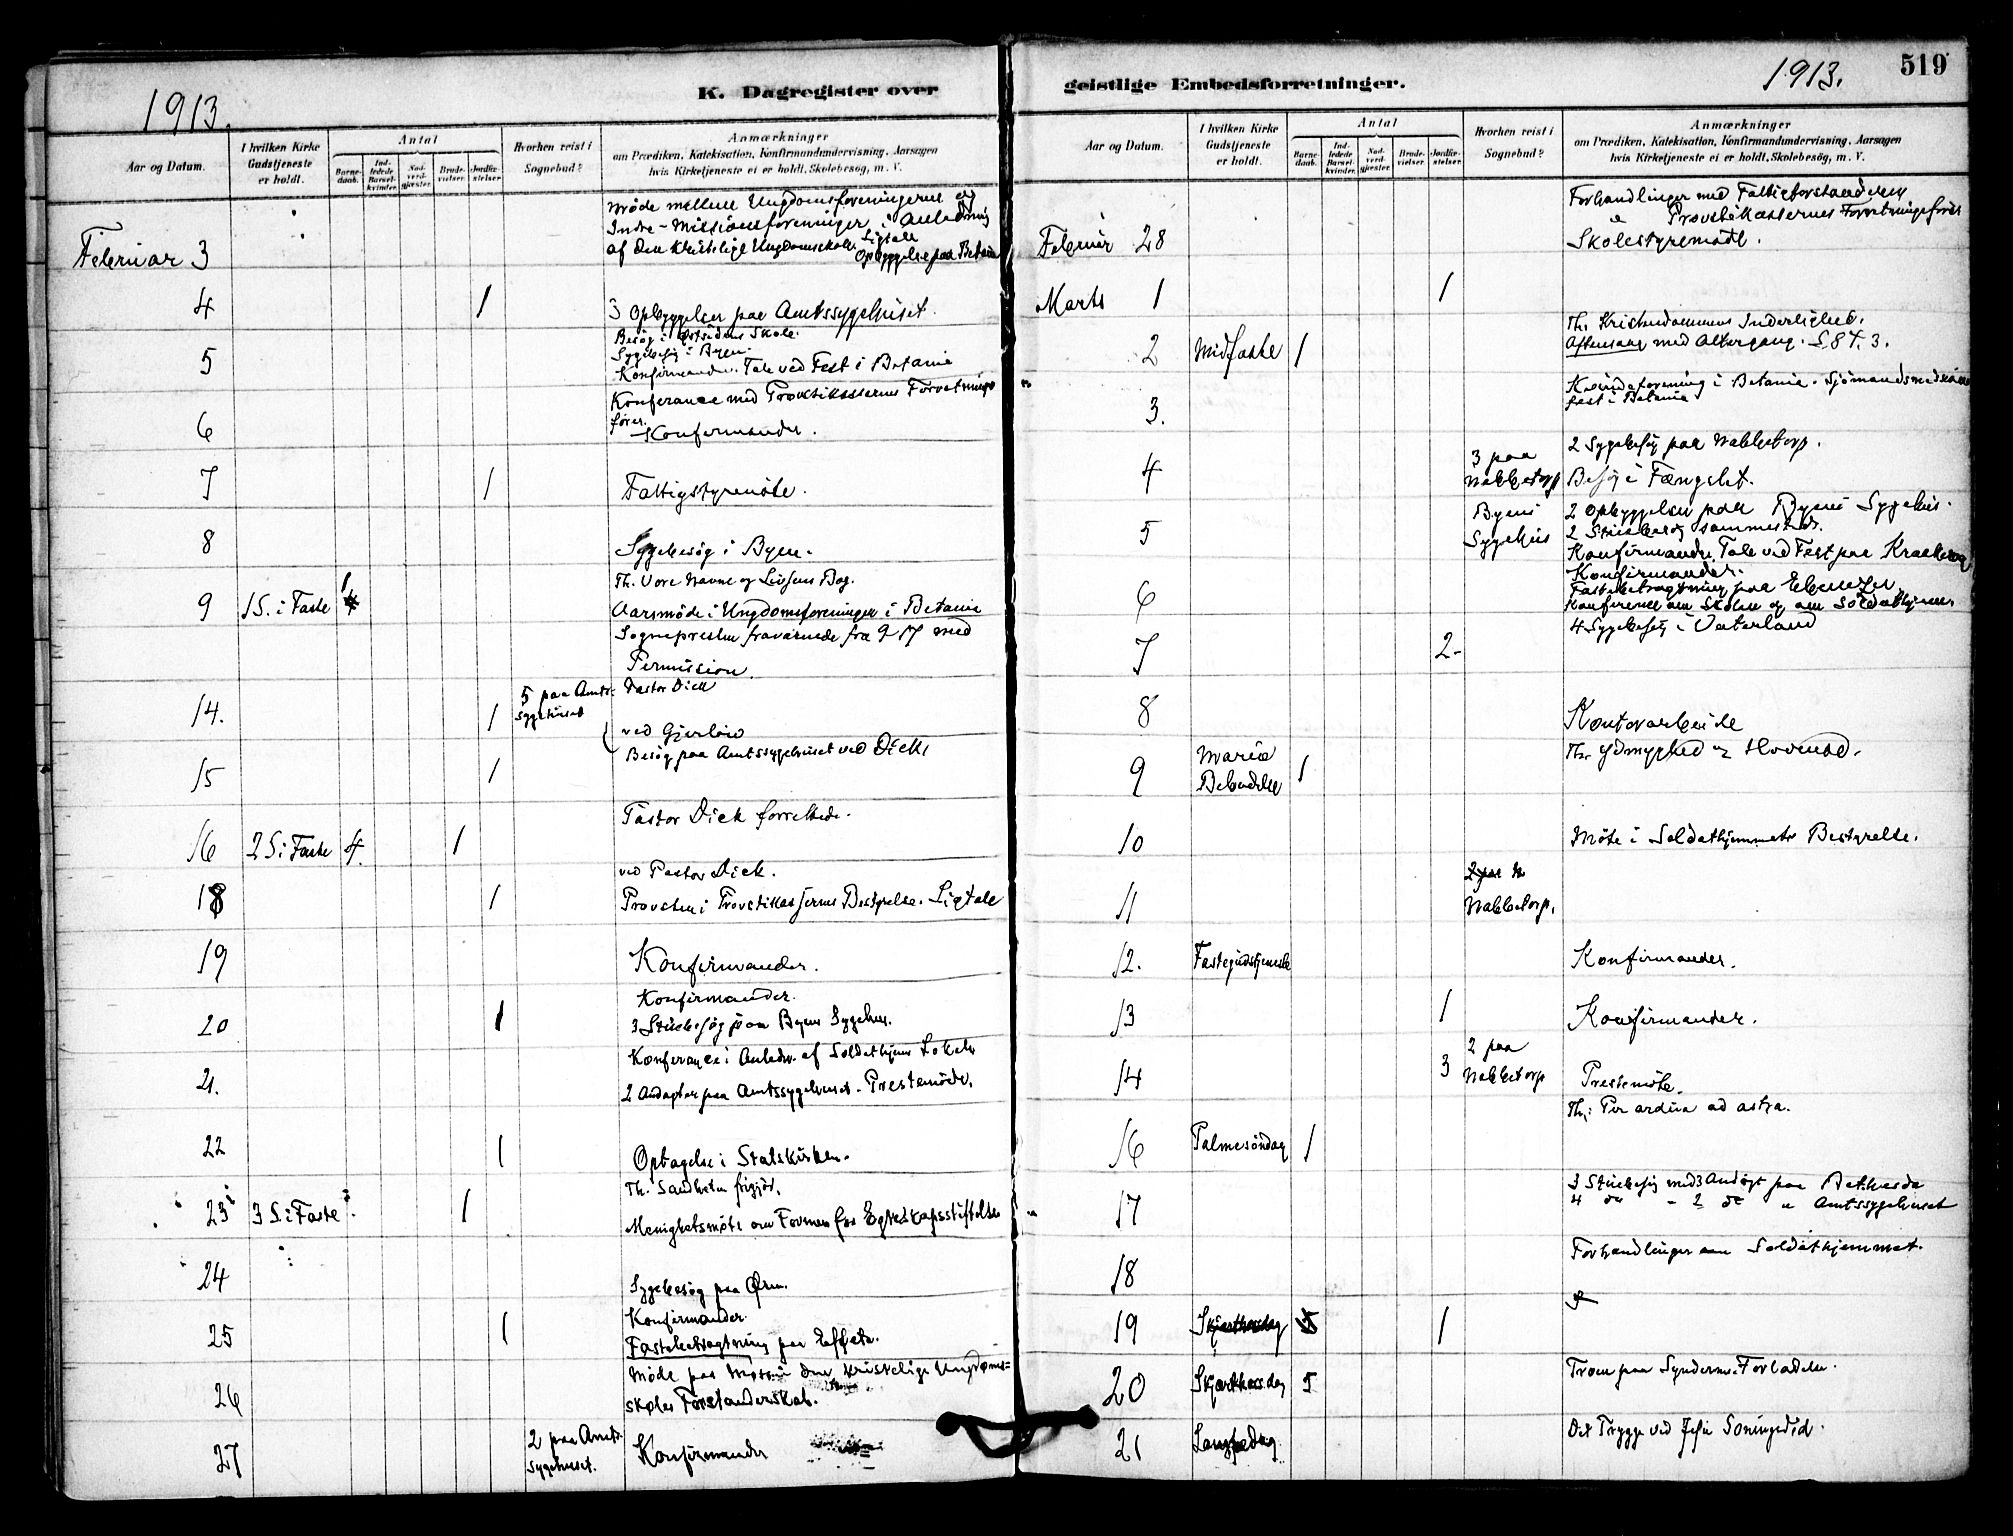 1913.
K. Dagregister over
Aar og Datum.
I hvilken Kirke Gudstjeneste er holdt.
Antal
Barne-daab.
Ind-ledede Barsel-kvinder.
Nad-verd-gjester.
Brude-vielser.
Jordfæ-stelser.
Hvorhen reist i Sognebud?
Anmærkninger
om Prædiken, Katekisation, Konfirmandundervisning, Aarsagen
hvis Kirketjeneste ei er holdt, Skolebesøg, m. V.
Februar 3
Møde mellem Ungdomsforeningerne og
Indre-Missionsforeninger i Anledning
af den Kristelige Ungdomsskole. Ligtale
Opbyggelse paa Betania
4 1 3 Opbyggelser paa Amtssygehuset.
5
Besøg i Østsidens Skole.
Sygebesøg i Byen.
Konfirmander. Tale ved Fest i Betania
6
Konferance med Provstikassernes Forretnings
fører.
Konfirmander.
7 1 Fattigstyremöte.
8 Sygebesøg i Byen.
9 1 S. i Faste 1
Th. Vore Navne og Livsens Bog.
Aarsmöde i Ungdomsforeninger i Betania
Sogneprestен fraværende fra 9-17 med
Permission.
14. 1 5 paa Amts-
sygehuset
Pastor Dick
ved Gjerløw
15 1 Besøg paa Amtssygehuset ved Dick
16 2 S. i Faste 4. 1 Pastor Dick forrettede.
ved Pastor Dick.
18 1 Provsten i Provstikassernes Bestyrelse. Ligtale
19 Konfirmander.
20 1 Konfirmander.
3 Sückebesøg paa Byens Sygehus.
21. Konferance i Anledn. af Soldathjems Lokale
2 Andagter paa Amtssygehuset. Prestemöde.
22 1 Optagelse i Statskirken.
23 3 S. i Faste 1
Th. Sandheten frigjör.
Menighetsmöte om Formen for Egteskapsstiftelse
24 Sygebesøg paa Ørm.
25 1 Konfirmander.
Fastebetragtning paa Effata.
26 Möde paa Moss i den kristelige Ungdoms-
skoles Forstanderskab.
27 2 paa Amts-
sygehuset.
Konfirmander
geistlige Embedsforretninger.
1913.
519
Aar og Datum.
I hvilken Kirke Gudstjeneste er holdt.
Antal
Barne-daab.
Ind-ledede Barsel-kvinder.
Nad-verd-gjester.
Brude-vielser.
Jordfæ-stelser.
Hvorhen reist i Sognebud?
Anmærkninger
om Prædiken, Katekisation, Konfirmandundervisning, Aarsagen
hvis Kirketjeneste ei er holdt, Skolebesøg, m. V.
Februar 28
Forhandlinger med Fattigforstanderen
" Provstikassernes Forretningsförer
Skolestyremöde.
Marts 1 1
2 Midfaste 1
Th. Kristendommens Inderlighed.
Aftensang med Altergang. S. 8 T. 3.
3.
Kvindeforening i Betania. Sjömandsmissions
fest i Betania
4 3 paa
Nabbetorp
2 Sygebesøg paa Nabbetorp.
Besøg i Fængslet.
5 Byens
Sygehus
2 Opbyggelser paa Byens Sygehus.
2 Sückebesøg sammesteds.
Konfirmander. Tale ved Fest paa Kraakerøy
6
Konfirmander.
Fastebetragtning paa Ebenezer
Konferance om Skolen og om Soldathjem.
7 2- 4 Sygebesøg i Vaterland
8 Kontorarbeide
9 Mariæ
Bebudelse 1
Th. Ydmyghed og Hovmod.
10 Möte i Soldathjemmets Bestyrelse.
11 2 paa
Nabbetorp.
12. Fastegudstjeneste Konfirmander.
13 1 Konfirmander.
14 3 2 paa
Nabbetorp
Prestemöte.
16 Palmesöndag 1
Th: Per ardua ad astra.
17
3 Sückebesøg med 3 Andagt paa Bethesda
4 do - 2 do " Amtssygehuset
18 Forhandlinger om Soldathjemmet.
19 Skjærthorsdag 5 1
20 Skjærthorsdag 5 Troen paa Syndernes Forladelse.
21 Langfredag Det Trygge ved Jesu Soningsdöd.